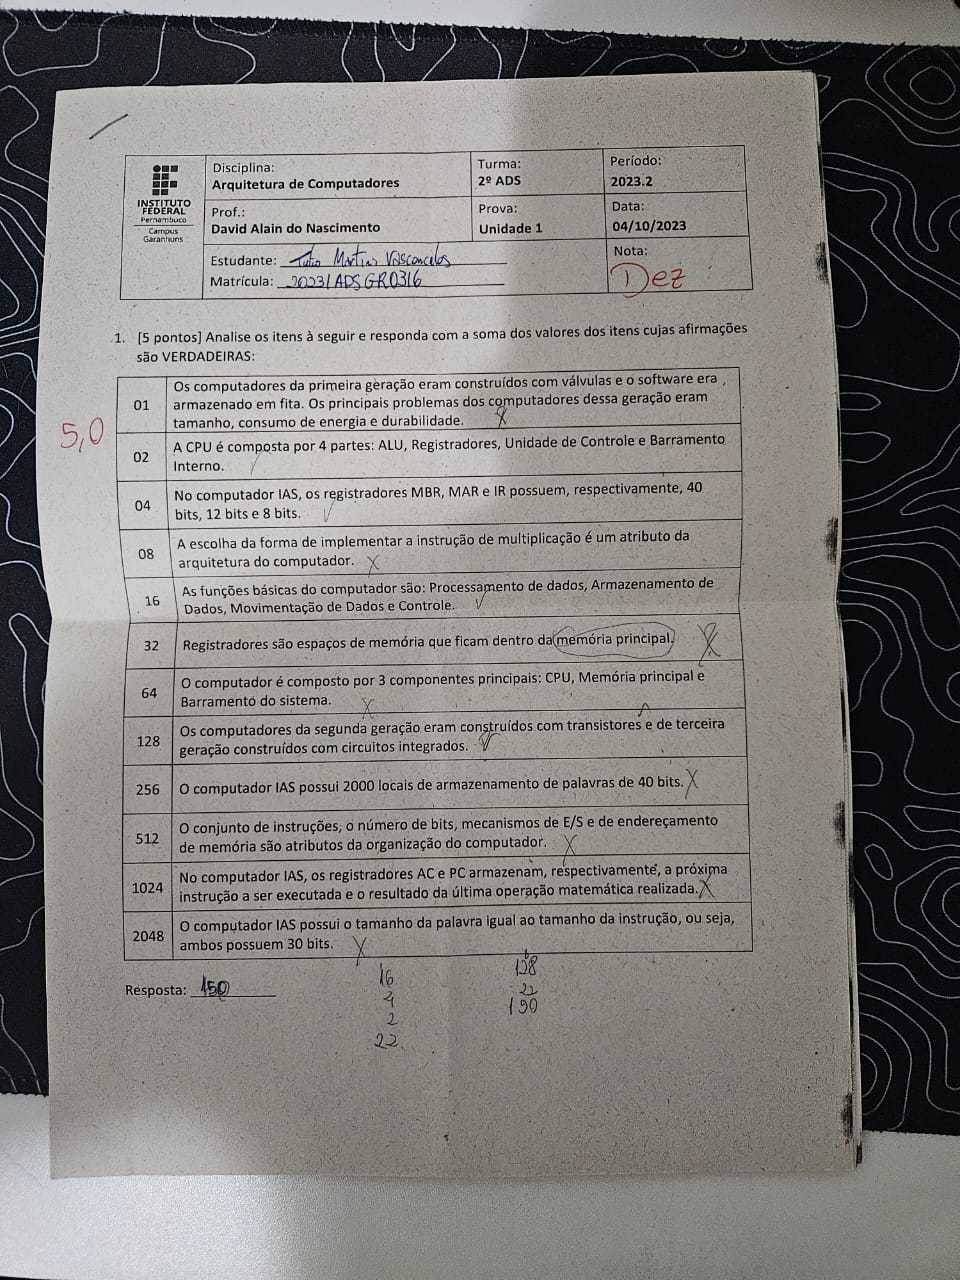 INSTITUTO
FEDERAL
Pernambuco
Campus
Garanhuns
Disciplina:
Arquitetura de Computadores
Turma:
2º ADS
Período:
2023.2
Prof.:
David Alain do Nascimento
Prova:
Unidade 1
Data:
04/10/2023
Estudante: Martins Vasconcelos
Matrícula: 20231ADSGR0316
Nota:
Dez
1. [5 pontos] Analise os itens à seguir e responda com a soma dos valores dos itens cujas afirmações
são VERDADEIRAS:
5,0
01
Os computadores da primeira geração eram construídos com válvulas e o software era
armazenado em fita. Os principais problemas dos computadores dessa geração eram
tamanho, consumo de energia e durabilidade.
02
A CPU é composta por 4 partes: ALU, Registradores, Unidade de Controle e Barramento
Interno.
04
No computador IAS, os registradores MBR, MAR e IR possuem, respectivamente, 40
bits, 12 bits e 8 bits.
08
A escolha da forma de implementar a instrução de multiplicação é um atributo da
arquitetura do computador.
16
As funções básicas do computador são: Processamento de dados, Armazenamento de
Dados, Movimentação de Dados e Controle.
32
Registradores são espaços de memória que ficam dentro da memória principal.
64
O computador é composto por 3 componentes principais: CPU, Memória principal e
Barramento do sistema.
128
Os computadores da segunda geração eram construídos com transistores e de terceira
geração construídos com circuitos integrados.
256
O computador IAS possui 2000 locais de armazenamento de palavras de 40 bits.
512
O conjunto de instruções, o número de bits, mecanismos de E/S e de endereçamento
de memória são atributos da organização do computador.
1024
No computador IAS, os registradores AC e PC armazenam, respectivamente, a próxima
instrução a ser executada e o resultado da última operação matemática realizada.
2048
O computador IAS possui o tamanho da palavra igual ao tamanho da instrução, ou seja,
ambos possuem 30 bits.
Resposta: 150
16
4
2
22
128
22
150